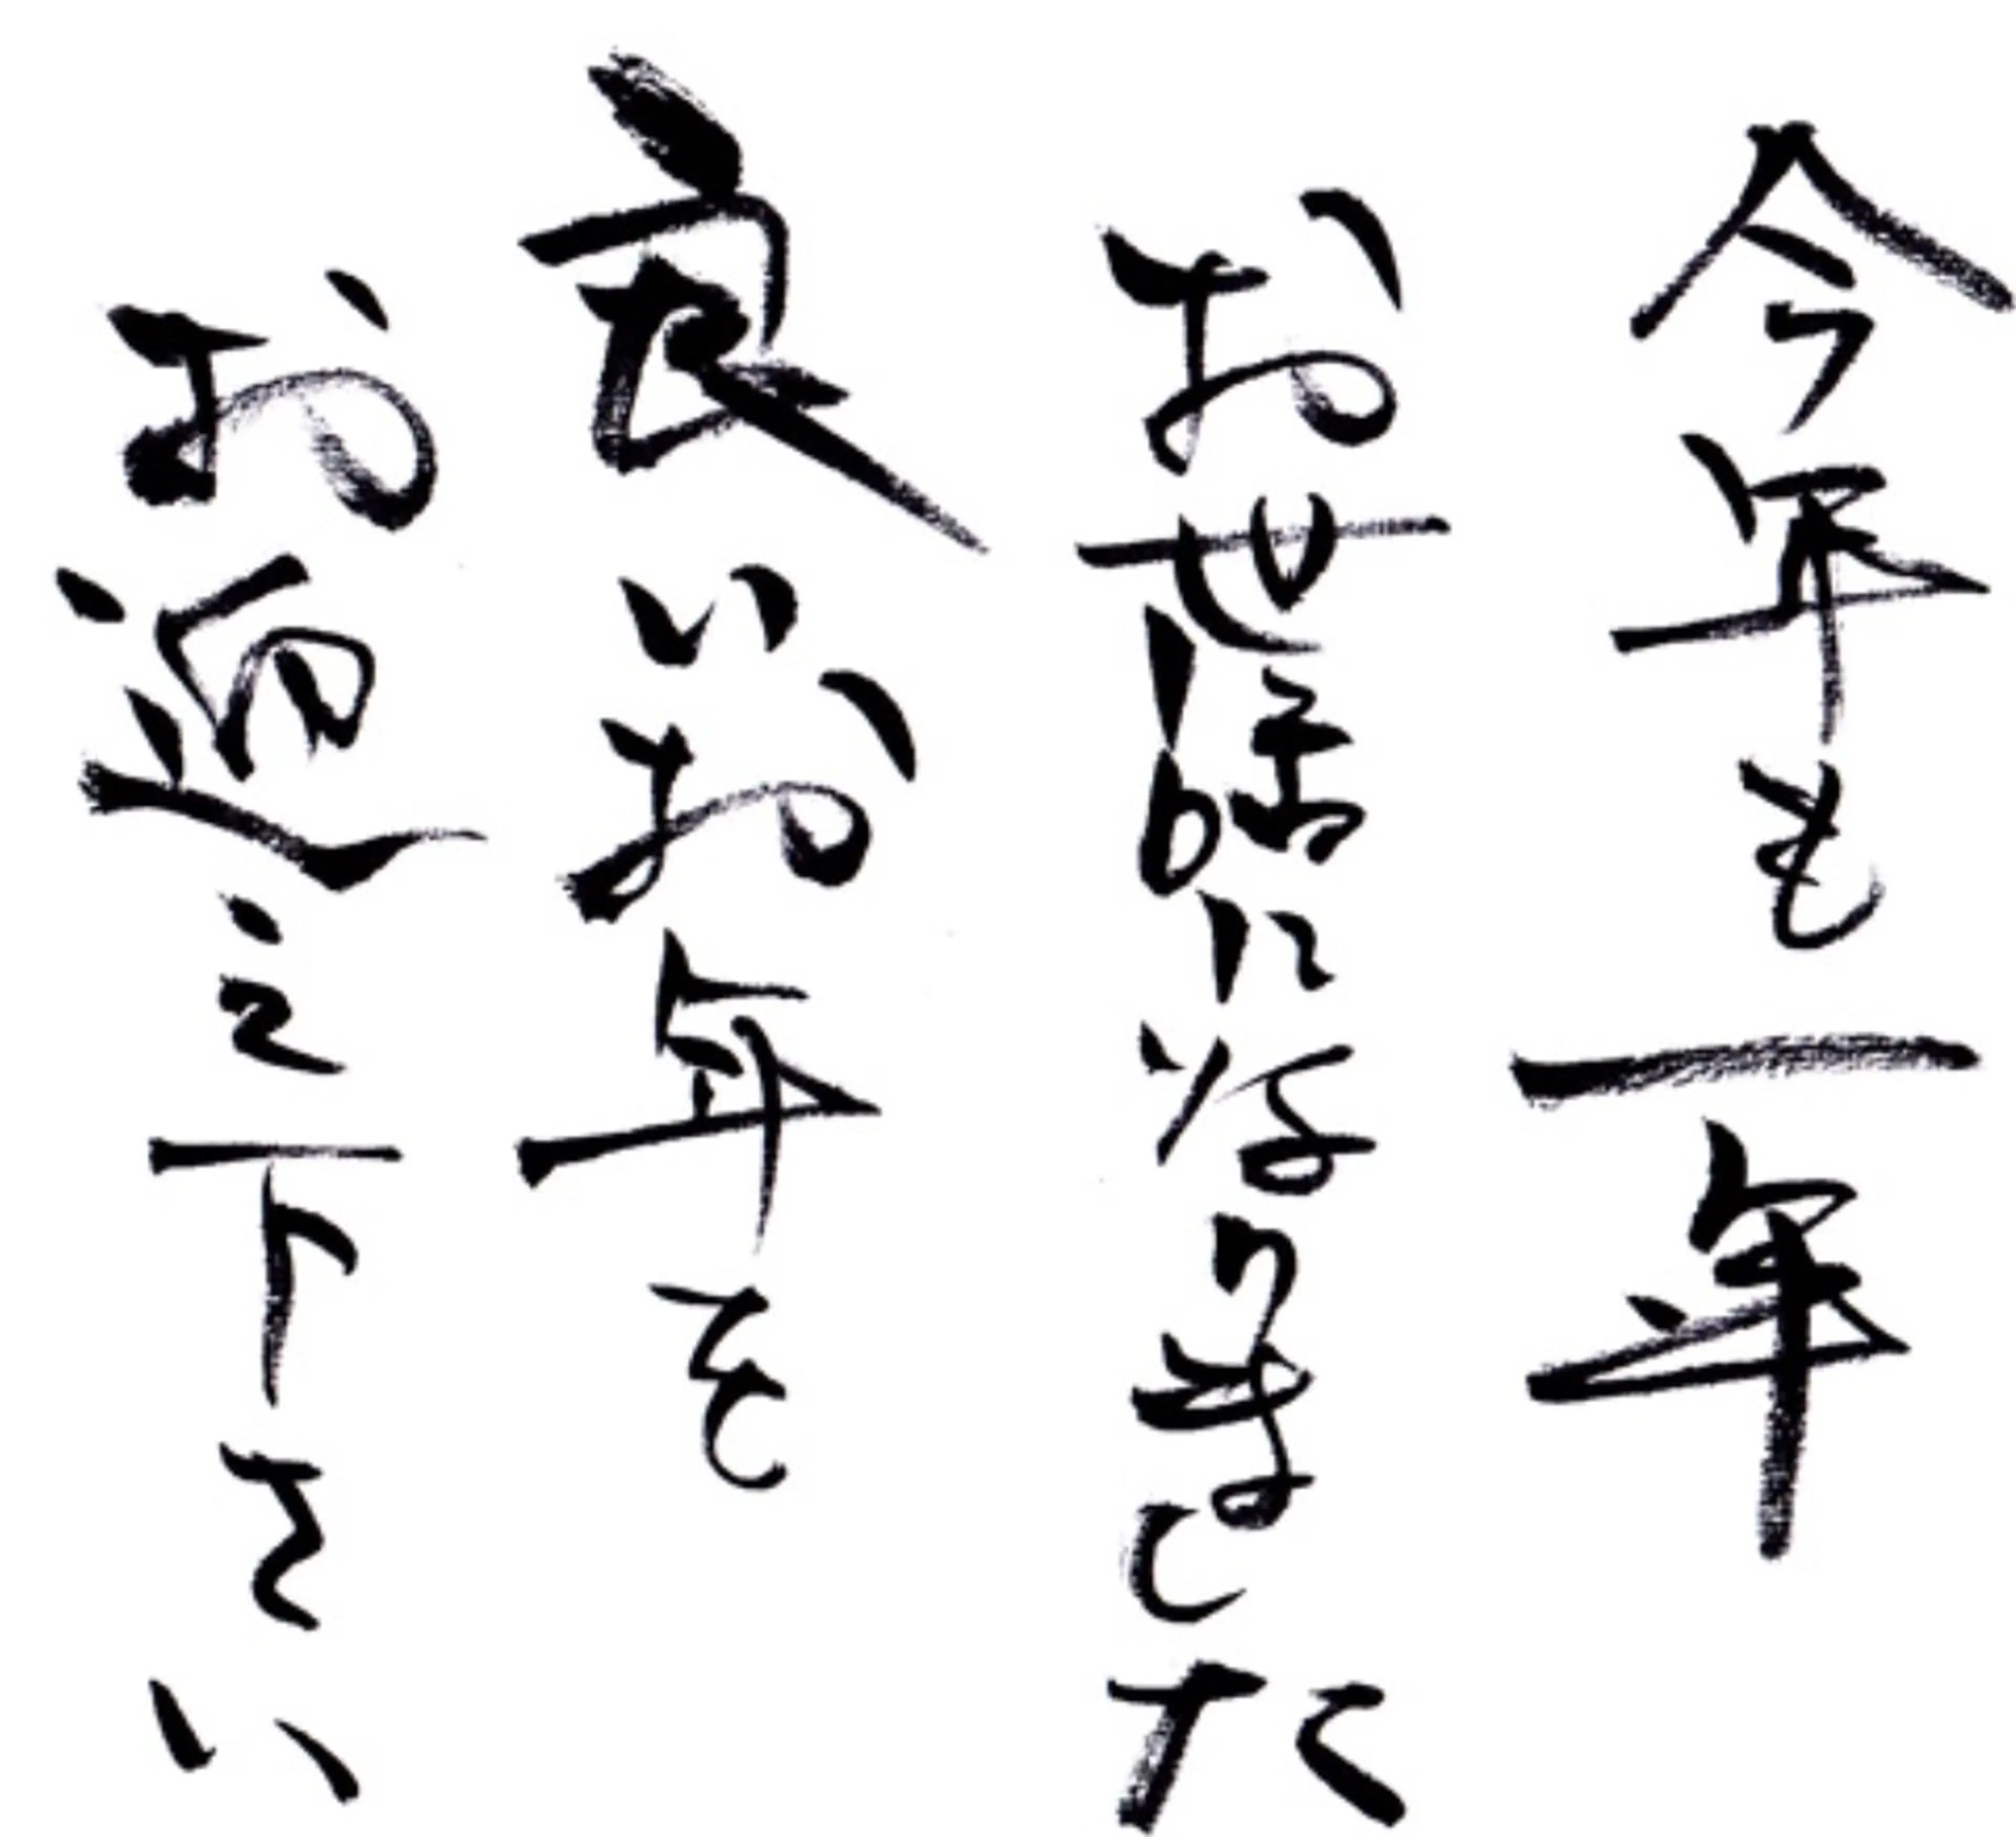 今年も一年
お世話になりました
良いお年を
お迎え下さい